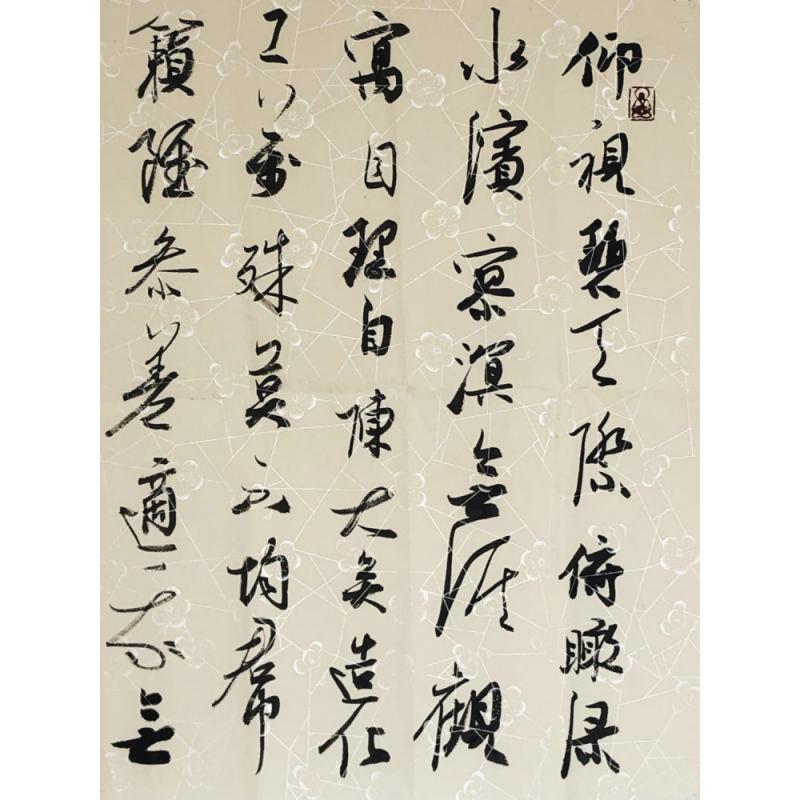 仰視碧天際俯瞰渌
水濱寥溟無涯觀
寓目理自陳大矣造化
工萬殊莫不均群
籟雖參差適我無